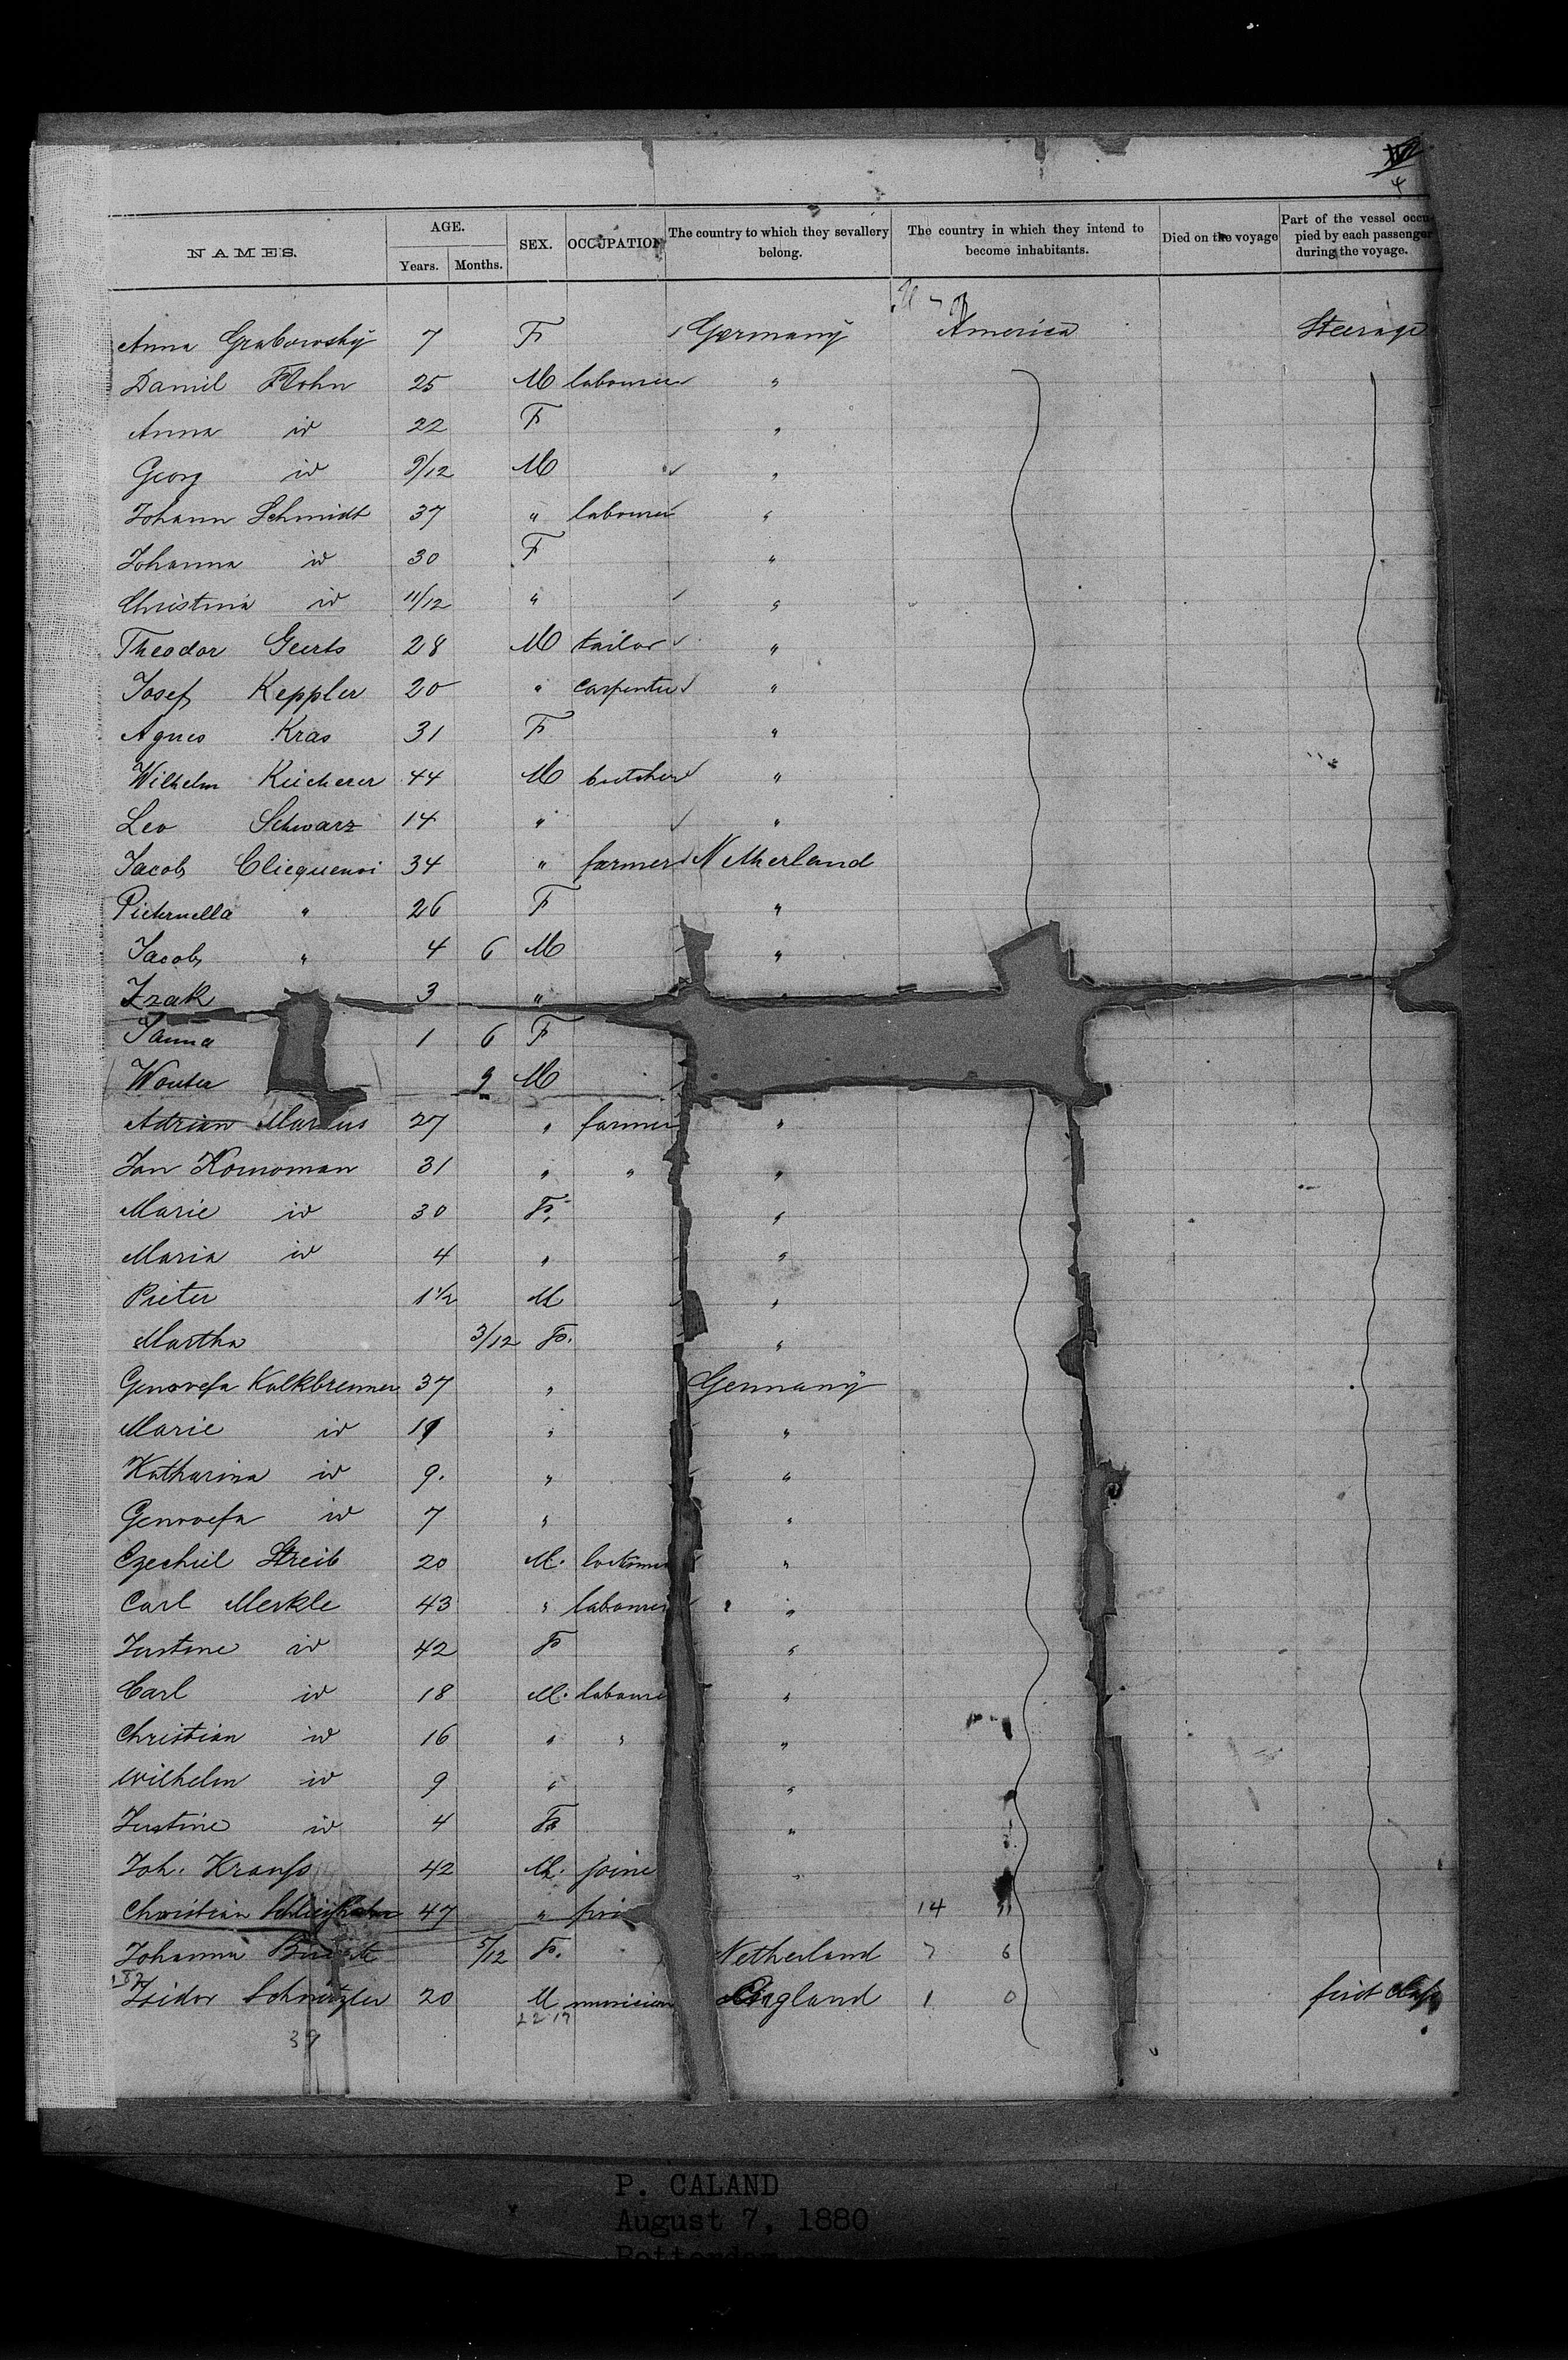 4
NAMES. AGE. Years. Months. SEX. OCCUPATION The country to which they sevallery belong. The country in which they intend to become inhabitants. Died on the voyage Part of the vessel occupied by each passenger during the voyage.
Anna Grabowsky 7 F Germany America Steerage
Daniel Flohn 25 M labourer "
Anna id 22 F "
Georg id 9/12 M "
Johann Schmidt 37 " labourer "
Johanna id 30 F "
Christina id 11/12 " "
Theodor Geerts 28 M tailor "
Josef Keppler 20 " carpenter "
Agnes Kras 31 F "
Wilhelm Kücherer 44 M butcher "
Leo Schwarz 14 " "
Jacob Clicquenoi 34 " farmer Netherland
Pieternella " 26 F "
Jacob " 4 6 M "
Izak 3 "
Janna 1 6 F
Wouter 9 M
Adrian Marinus 27 " farmer "
Jan Kornoman 31 " " "
Marie id 30 F. "
Maria id 4 " "
Pieter 1 1/2 M "
Martha 3/12 F. "
Genovefa Kalkbrenner 37 " Germany
Marie id 11 " "
Katharina id 9. " "
Genovefa id 7 " "
Ezechiel Streib 20 M. "
Carl Merkle 43 " labourer "
Justine id 42 F "
Carl id 18 M. laboure "
Christian id 16 " " "
Wilhelm id 9 " "
Justine id 4 F "
Joh. Krauss 42 M. joine "
Christian 47 " 14
Johanna 5/12 F. Netherland 7 6
Isidor Schnitzler 20 M musician England 1 0 first Class
22 17
39
P. CALAND
August 7, 1880
Rotterdam